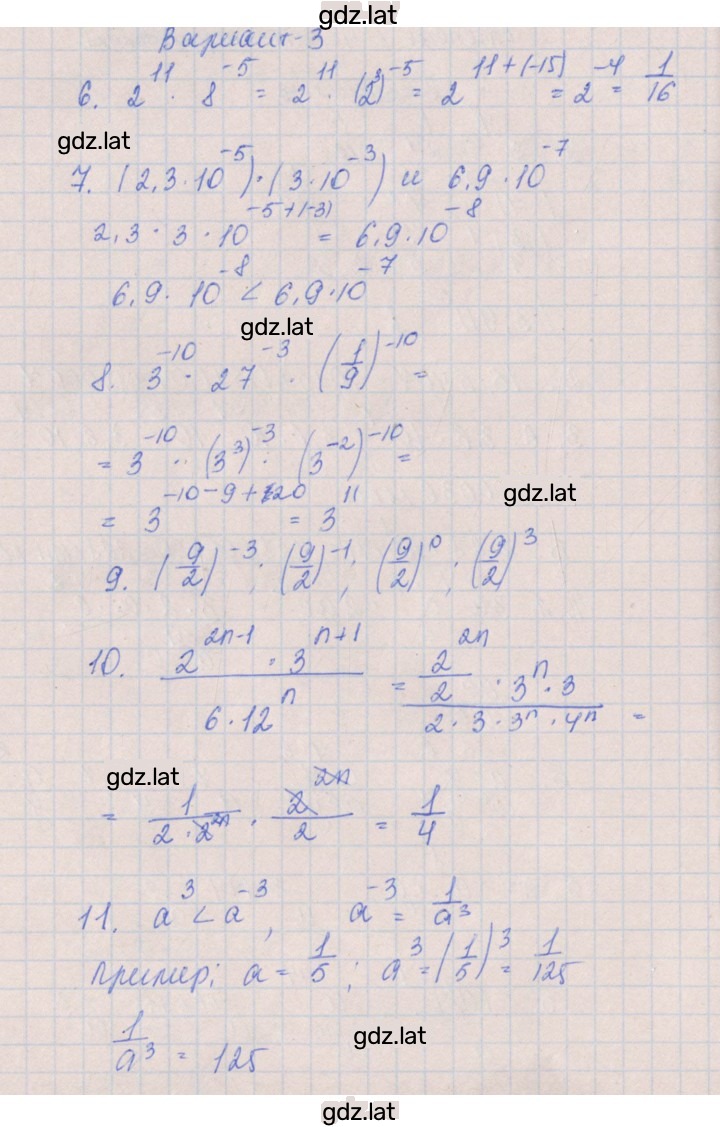 gdz.lat
Вариант-3
6. 2^11 · 8^-5 = 2^11 · (2^3)^-5 = 2^11+(-15) = 2^-4 = 1/16
gdz.lat
7. (2,3·10^-5)·(3·10^-3) и 6,9·10^-7
2,3·3·10^-5+(-3) = 6,9·10^-8
6,9·10^-8 < 6,9·10^-7
gdz.lat
8. 3^-10 · 27^-3 · (1/9)^-10 =
= 3^-10 · (3^3)^-3 · (3^-2)^-10 =
gdz.lat
= 3^-10-9+20 = 3^11
9. (9/2)^-3; (9/2)^-1; (9/2)^0; (9/2)^3
10. (2^2n-1 · 3^n+1)/(6·12^n) = (2^2n/2 · 3^n · 3)/(2·3·3^n·4^n) =
gdz.lat
= 1/(2·2^2n) · 2^2n/2 = 1/4
11. a^3 < a^-3, a^-3 = 1/a^3
Пример: a = 1/5; a^3 = (1/5)^3 = 1/125
1/a^3 = 125
gdz.lat
gdz.lat